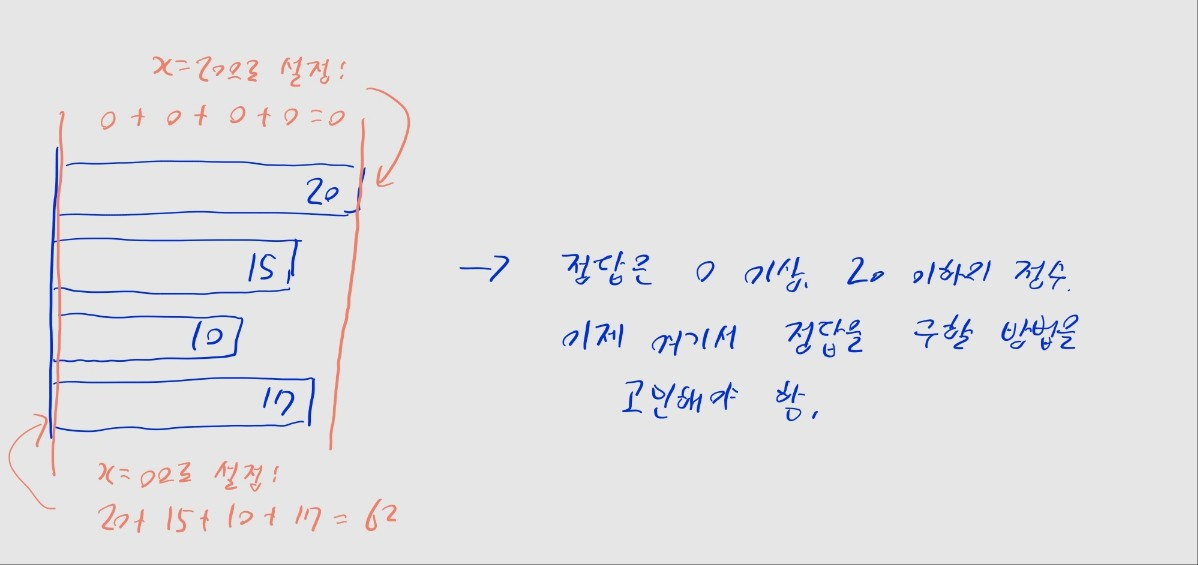 x=20으로 설정!
0 + 0 + 0 + 0 = 0
20
15
10
17
x=0으로 설정!
20+ 15+ 10+ 17 = 62
→ 정답은 0 이상, 20 이하의 정수.
이제 여기서 정답을 구할 방법을
고민해야 함.